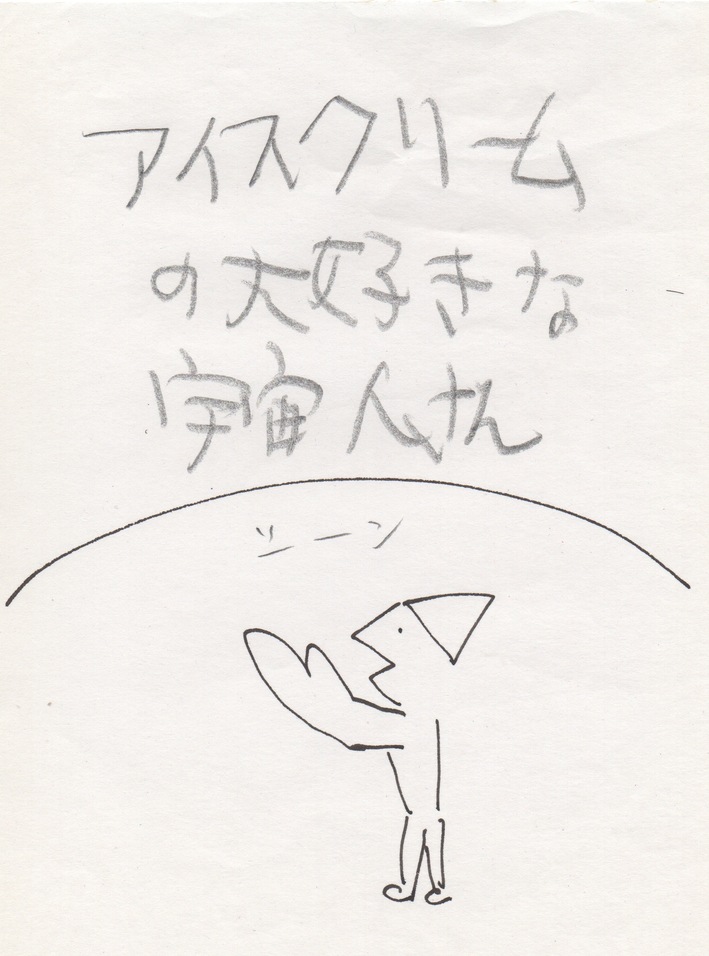 アイスクリーム
の大好きな
宇宙人さん
シーン